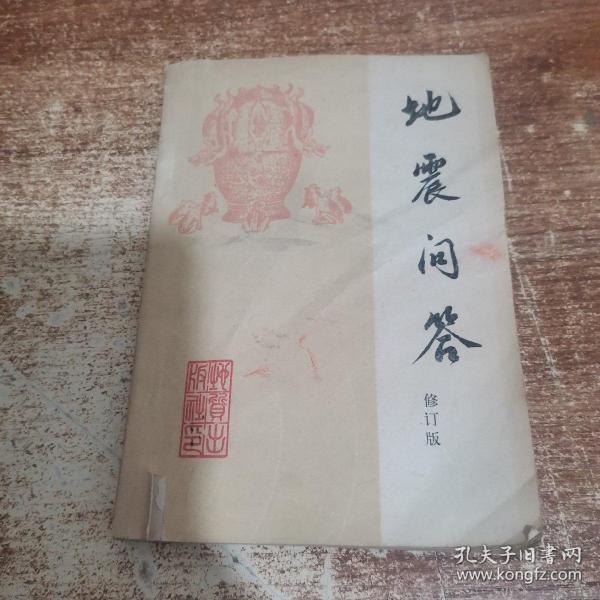 地震问答
修订版
地质出
版社印
孔夫子旧书网
www.kongfz.com